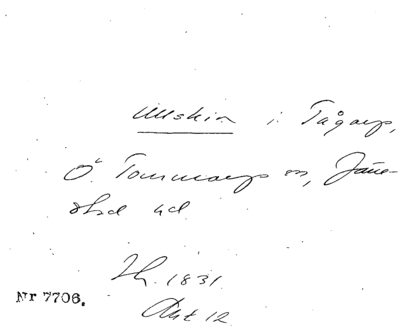 i Tågarp,
Ö. Tommarps sn, Järre-
stad hd
Th. 1831.
Ant 12
Nr 7706.